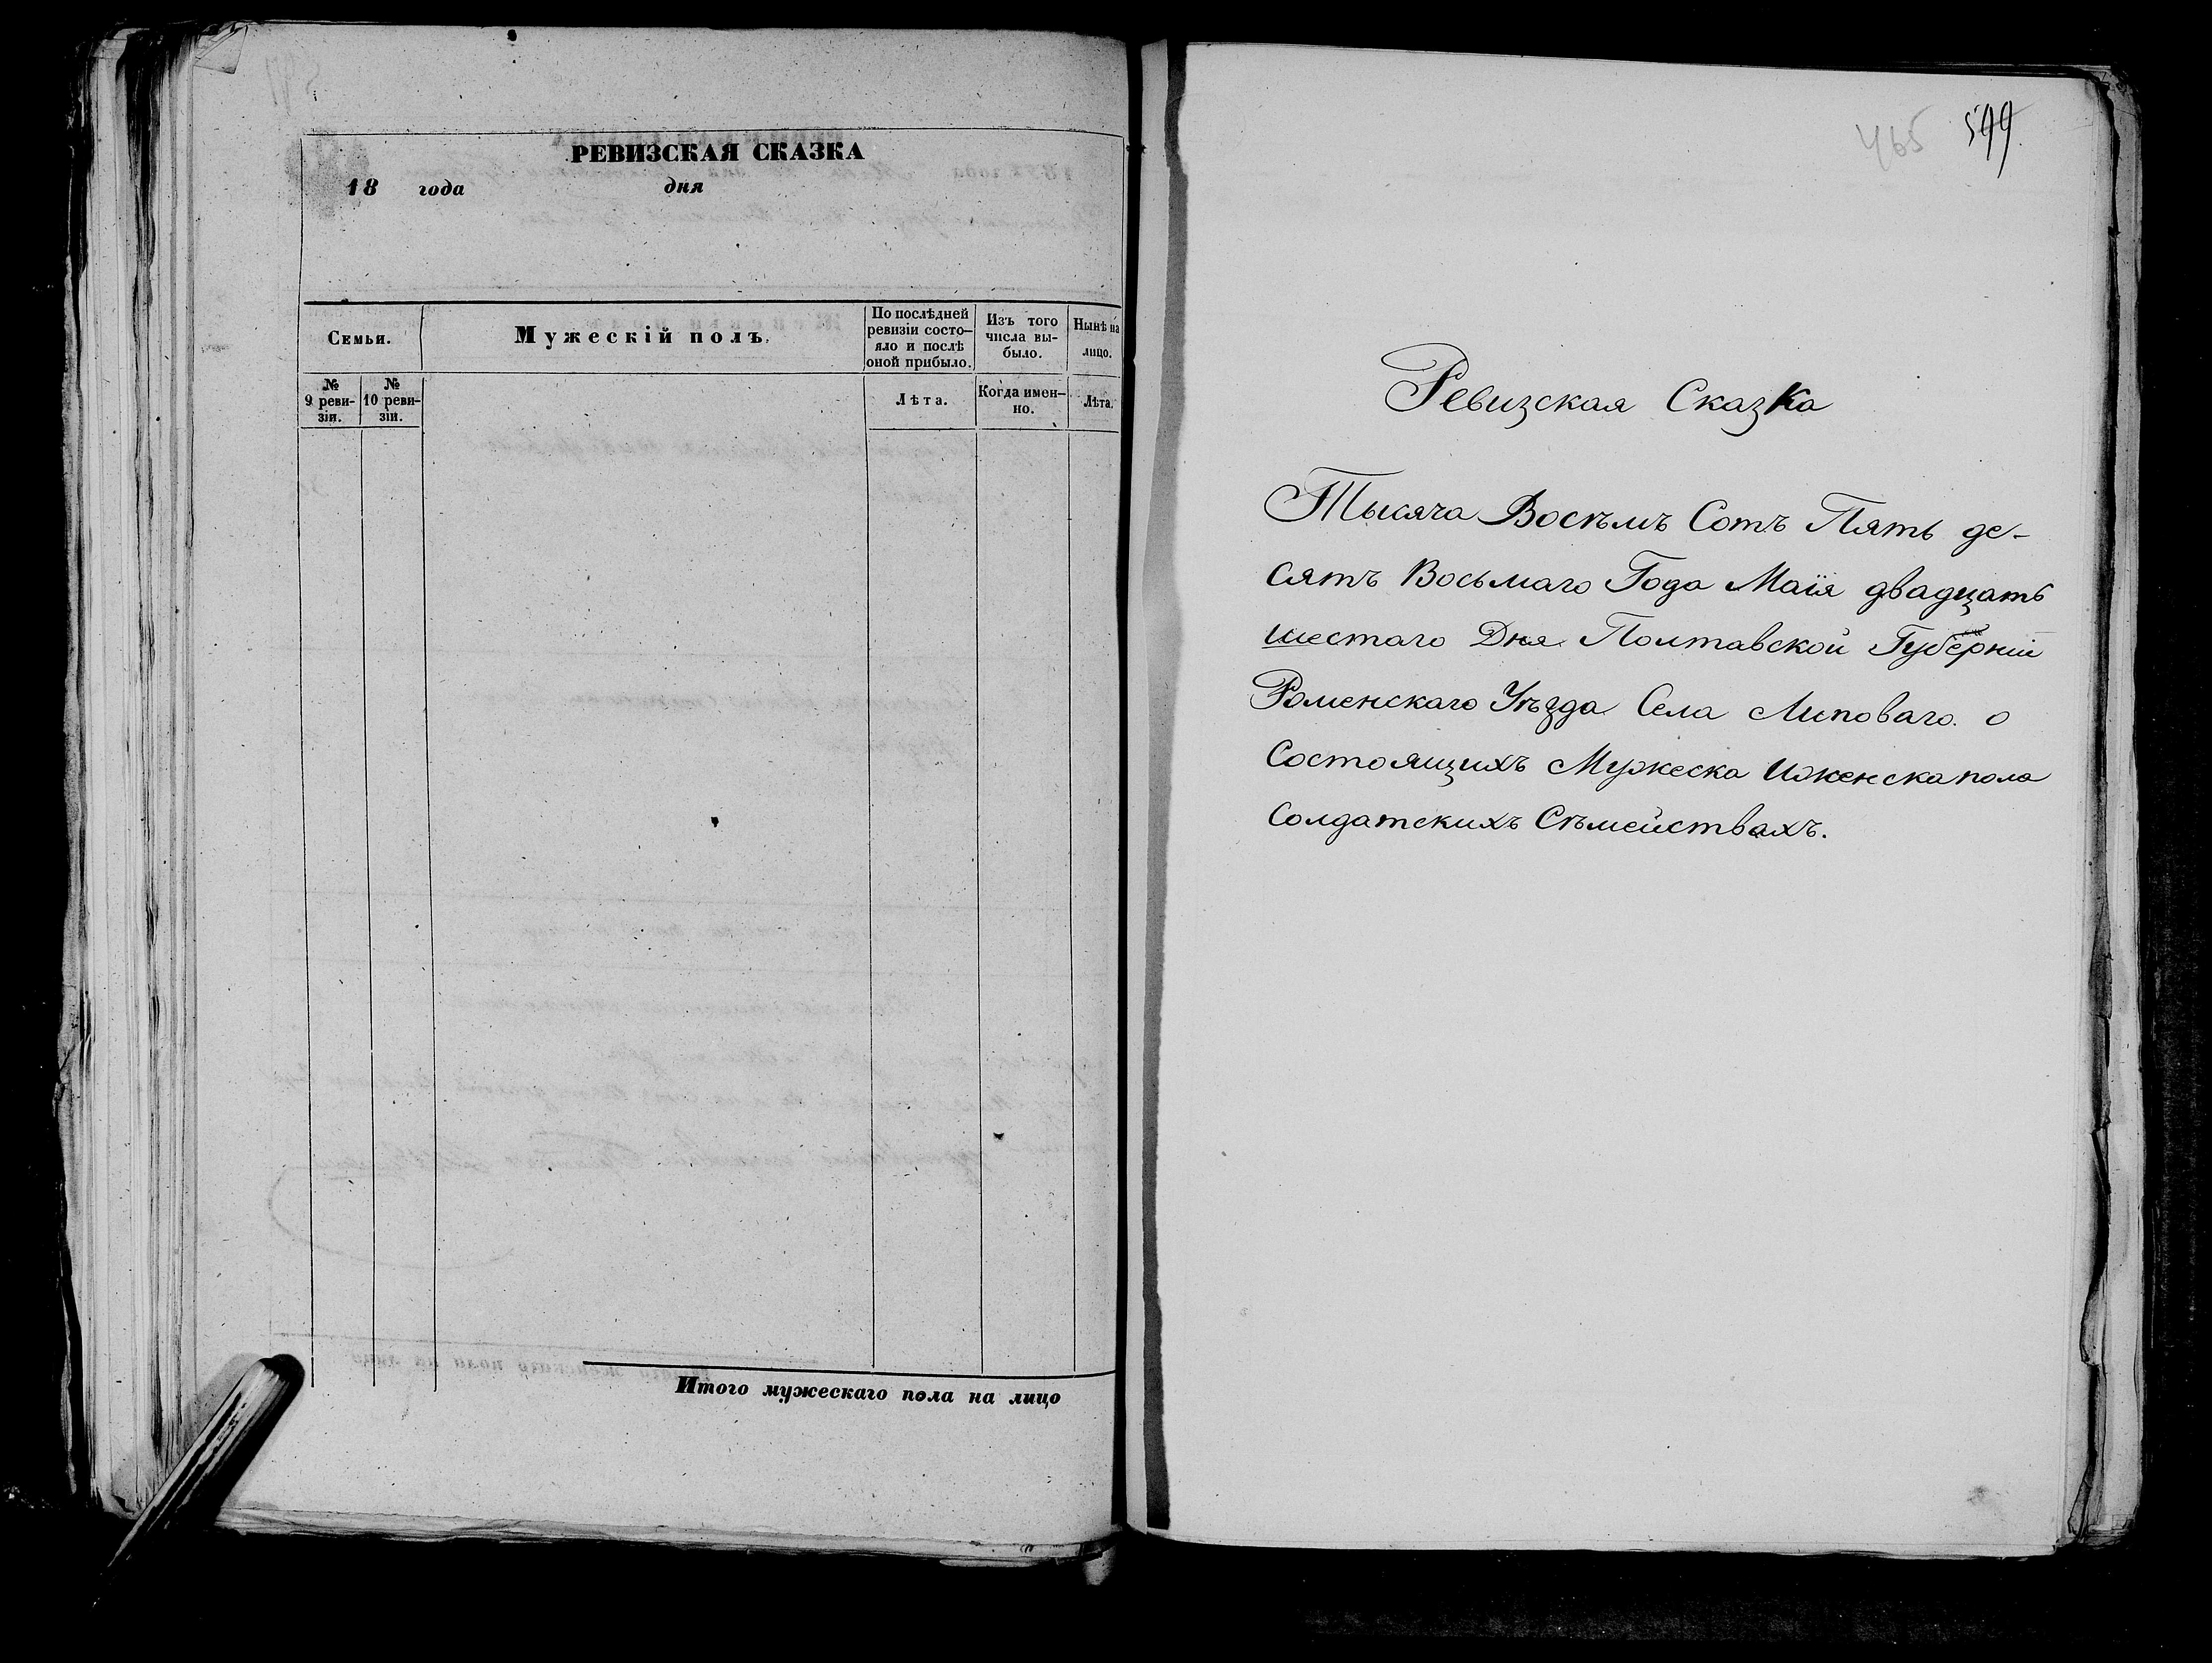 РЕВИЗСКАЯ СКАЗКА
18 года дня
Семьи.
Мужескій полъ.
По послѣдней
ревизіи состо-
яло и послѣ
оной прибыло.
Изъ того
числа вы-
было.
Нынѣ на
лицо.
№
9 реви-
зіи.
№
10 реви-
зіи.
Лѣта.
Когда имен-
но.
Лѣта.
Итого мужескаго пола на лицо
465 599
Ревизская Сказка
Тысяча Восѣмъ Сотъ Пять де-
сятъ Восьмаго Года Маія двадцать
шестаго Дня Полтавской Губерніи
Роменскаго Уѣзда Села Липоваго о
Состоящихъ Мужеска Иженска пола
Солдатскихъ Сѣмействахъ.